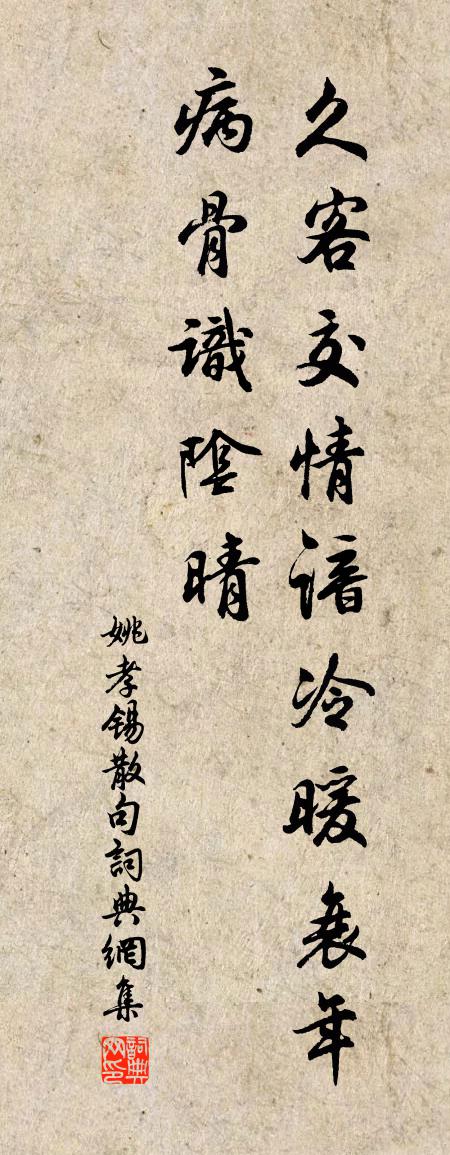 久客交情諳冷暖衰年
病骨識陰晴
姚孝锡散句詞典網集
詞典网印